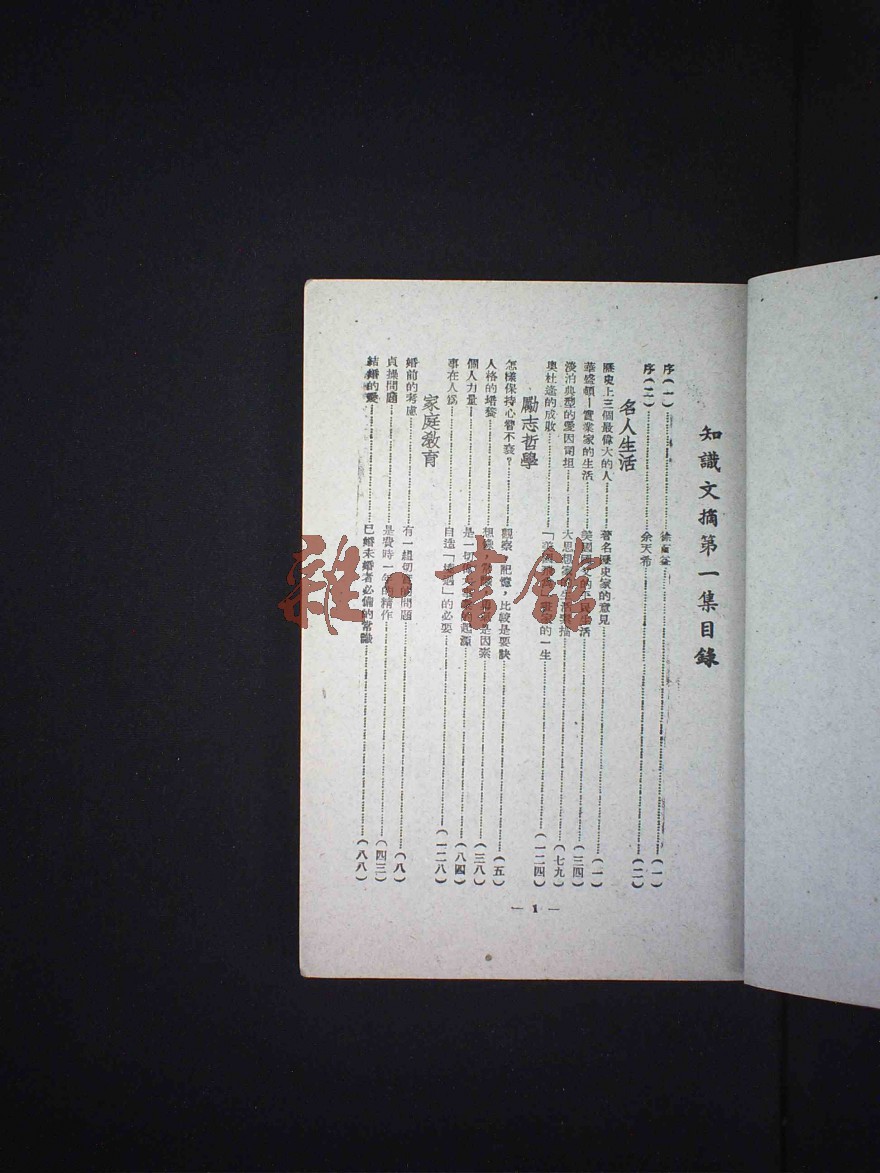 知識文摘第一集目錄
序(一)……徐……(一)
序(二)……余天希……(二)
名人生活
歷史上三個最偉大的人……著名歷史家的意見……(一)
華盛頓—實業家的生活……美國國父的平民生活……(三四)
淡泊典型的愛因司坦……大思想家的生活素描……(七九)
奧杜遜的成敗……「美洲……的一生……(一二四)
勵志哲學
怎樣保持心智不衰?……觀察,記憶,比較是要訣……(五)
人格的培養……想像,……是因素……(三八)
個人力量—……是一切……的起源……(八四)
事在人爲……自造「機遇」的必要……(一二八)
家庭教育
婚前的考慮……有一組切實的問題……(八)
貞操問題……是費時一年的精作……(四三)
結婚的愛……已婚未婚者必備的常識……(八八)
— 1 —
雜·書館